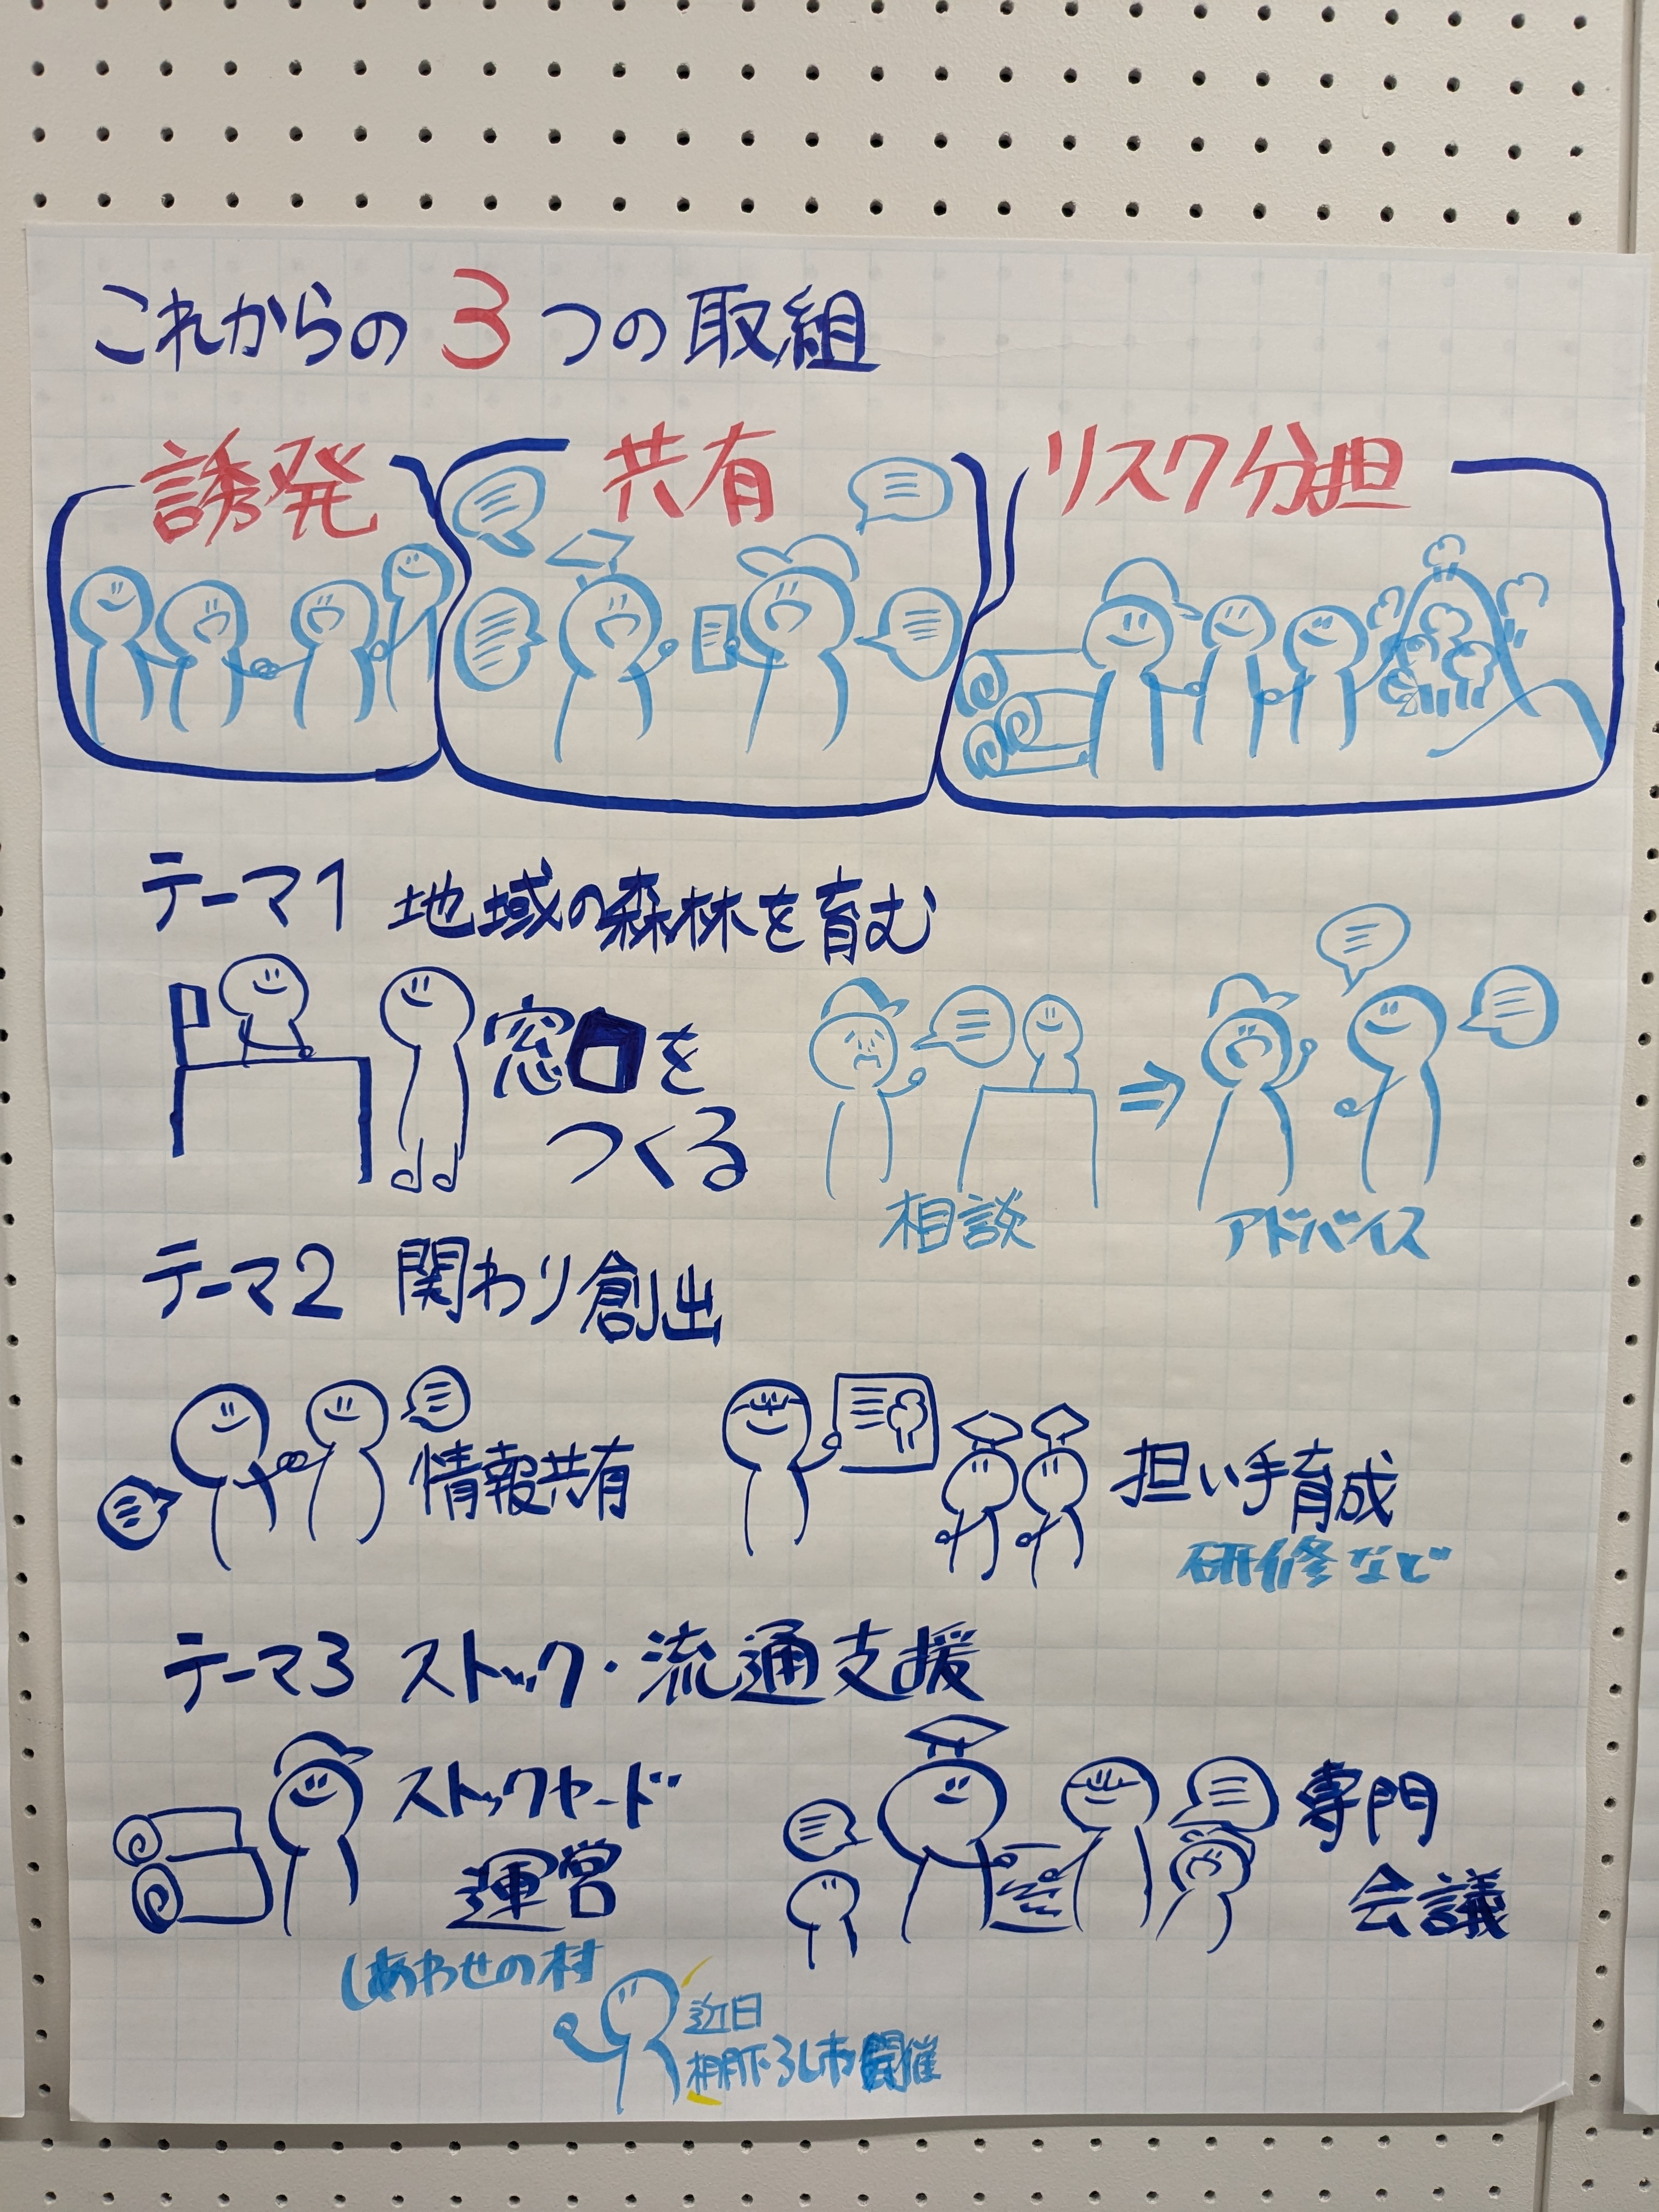 これからの3つの取組
誘発
共有
リスク分担
テーマ1 地域の森林を育む
窓口を
つくる
相談
アドバイス
テーマ2 関わり創出
情報共有
担い手育成
研修など
テーマ3 ストック・流通支援
ストックヤード
運営
専門
会議
しあわせの村
近日
棚下ろし市開催